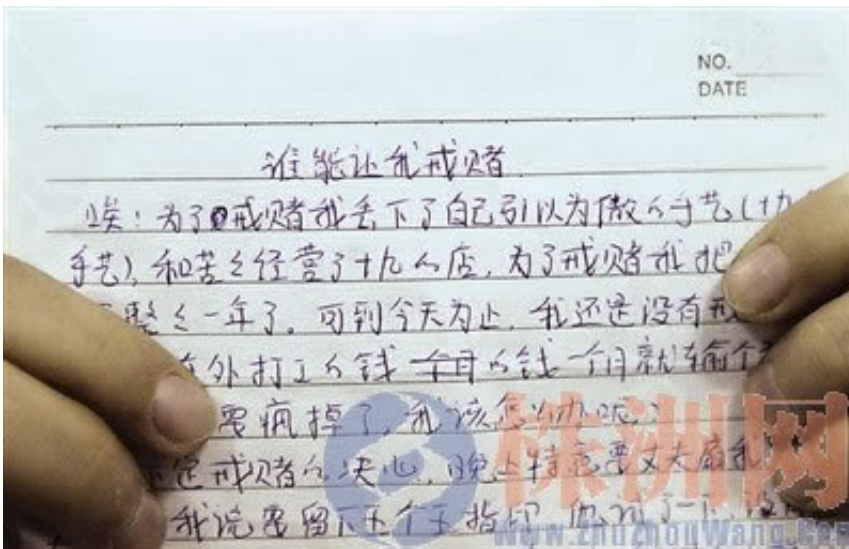 NO.
DATE
谁能让我戒赌
唉!为了戒赌我丢下了自己引以为傲的手艺(十九
手艺),和苦々经营了十九的店,为了戒赌我把
整々一年了。可到今天为止,我还是没有戒
外打工的钱 一个月的钱一个月就输个
要疯掉了,我该怎么办呢?
下定戒赌的决心,晚上特意要丈夫扇我
我说要留下五个手指印 他试了一下,没
株洲网
www.zhuzhouwang.com